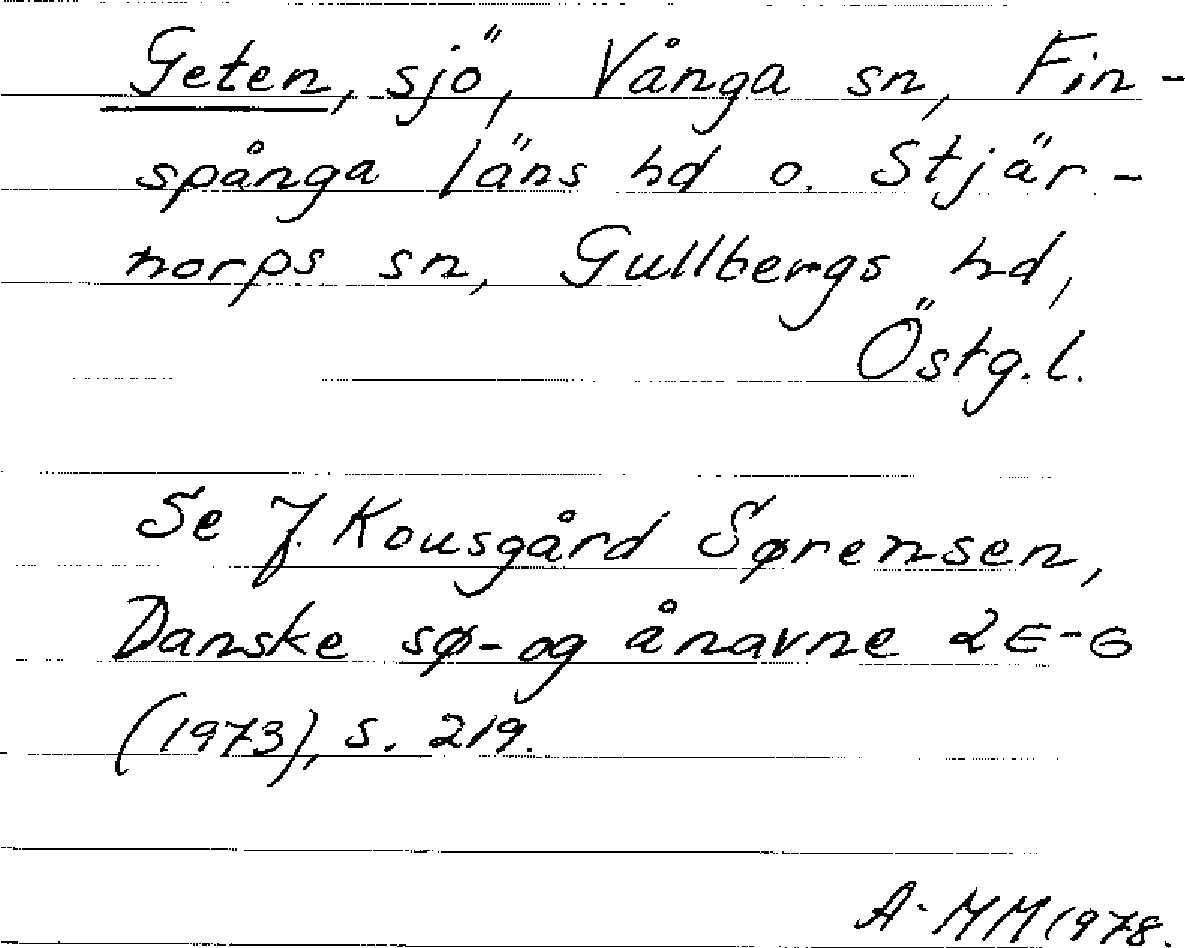 Geten, sjö, Vånga sn, Fin-
spånga läns hd o. Stjär-
norps sn, Gullbergs hd,
Östg.l.
Se J. Kousgård Sørensen,
Danske sø- og ånavne 2 E-G
(1973), s. 219.
A-MM 1978.